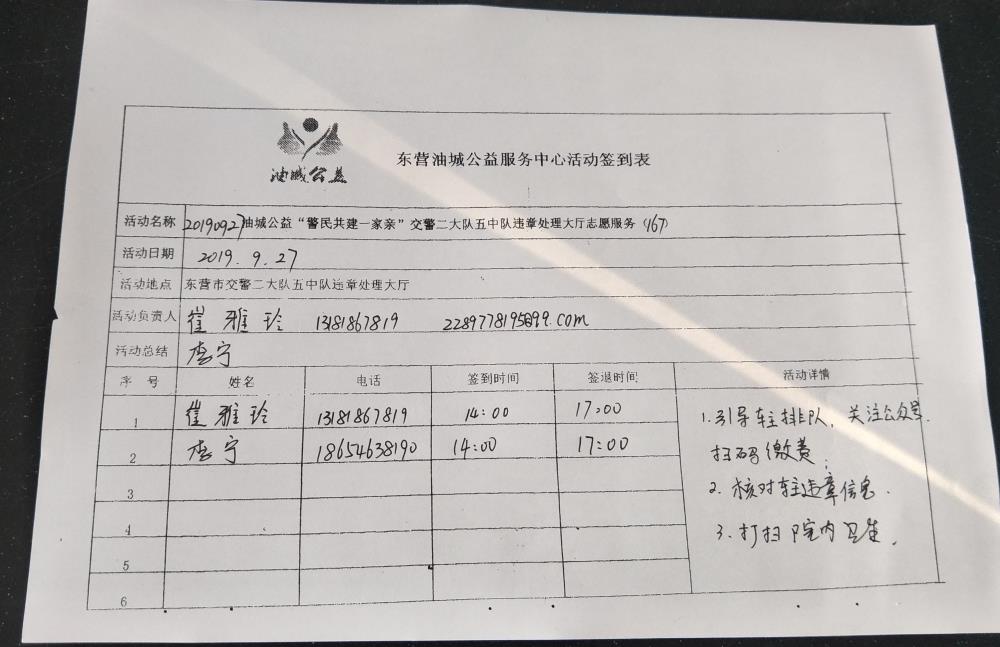 油城公益
东营油城公益服务中心活动签到表
活动名称 20190927油城公益“警民共建一家亲”交警二大队五中队违章处理大厅志愿服务（167）
活动日期 2019.9.27
活动地点 东营市交警二大队五中队违章处理大厅
活动负责人 崔雅玲 13181867819 2289778195@99.com
活动总结 李宁
序号 姓名 电话 签到时间 签退时间 活动详情
1 崔雅玲 13181867819 14:00 17:00
2 李宁 18654638190 14:00 17:00
3
4
5
6
1.引导车主排队，关注公众号.
扫码缴费；
2.核对车主违章信息.
3.打扫院内卫生.